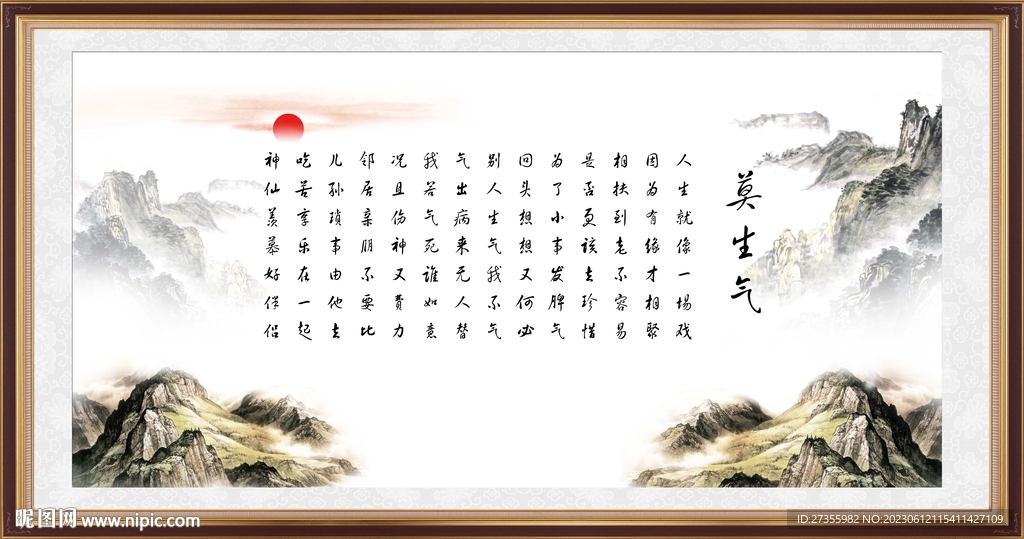 莫生气
人生就像一場戏
因为有缘才相聚
相扶到老不容易
是否更该去珍惜
为了小事发脾气
回头想想又何必
别人生气我不气
气出病来无人替
我若气死谁如意
况且伤神又費力
邻居亲朋不要比
儿孙琐事由他去
吃苦享乐在一起
神仙羡慕好伴侣
昵图网 www.nipic.com
ID:27355982 NO:20230612115411427109